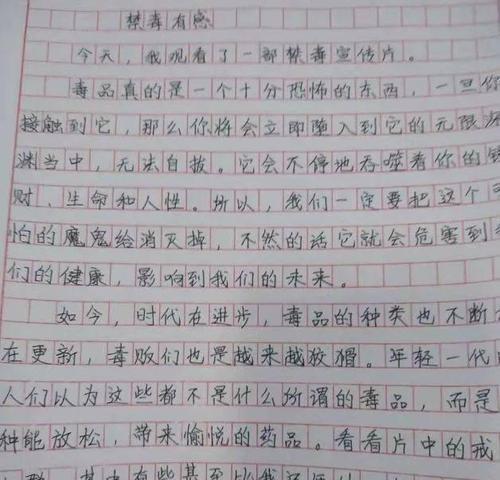 禁毒有感
今天，我观看了一部禁毒宣传片。
毒品真的是一个十分恐怖的东西，一旦你
接触到它，那么你将会立即堕入到它的无限深
渊当中，无法自拔。它会不停地吞噬着你的钱
财、生命和人性。所以，我们一定要把这个可
怕的魔鬼给消灭掉，不然的话它就会危害到
们的健康，影响到我们的未来。
如今，时代在进步，毒品的种类也不断
在更新，毒贩们也是越来越狡猾。年轻一代
人们以为这些都不是什么所谓的毒品，而是
种能放松，带来愉悦的药品。看看片中的戒
其中有些甚至比我还